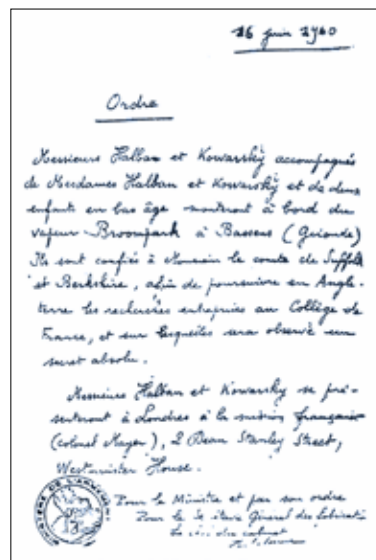 16 juin 1940
Ordre
Messieurs Halban et Kowarsky accompagnés
de Mesdames Halban et Kowarsky et de deux
enfants en bas âge monteront à bord du
vapeur Broompark à Bassens (Gironde)
Ils sont confiés à Monsieur le comte de Suffolk
et Berkshire, afin de poursuivre en Angle-
terre les recherches entreprises au Collège de
France, et sur lesquelles sera observé un
secret absolu.
Messieurs Halban et Kowarsky se pré-
senteront à Londres à la mission française
(colonel Mayer), 2 Dean Stanley Street,
Westminster House.
Pour le Ministre et par son ordre
Pour le Général des
Le cabinet